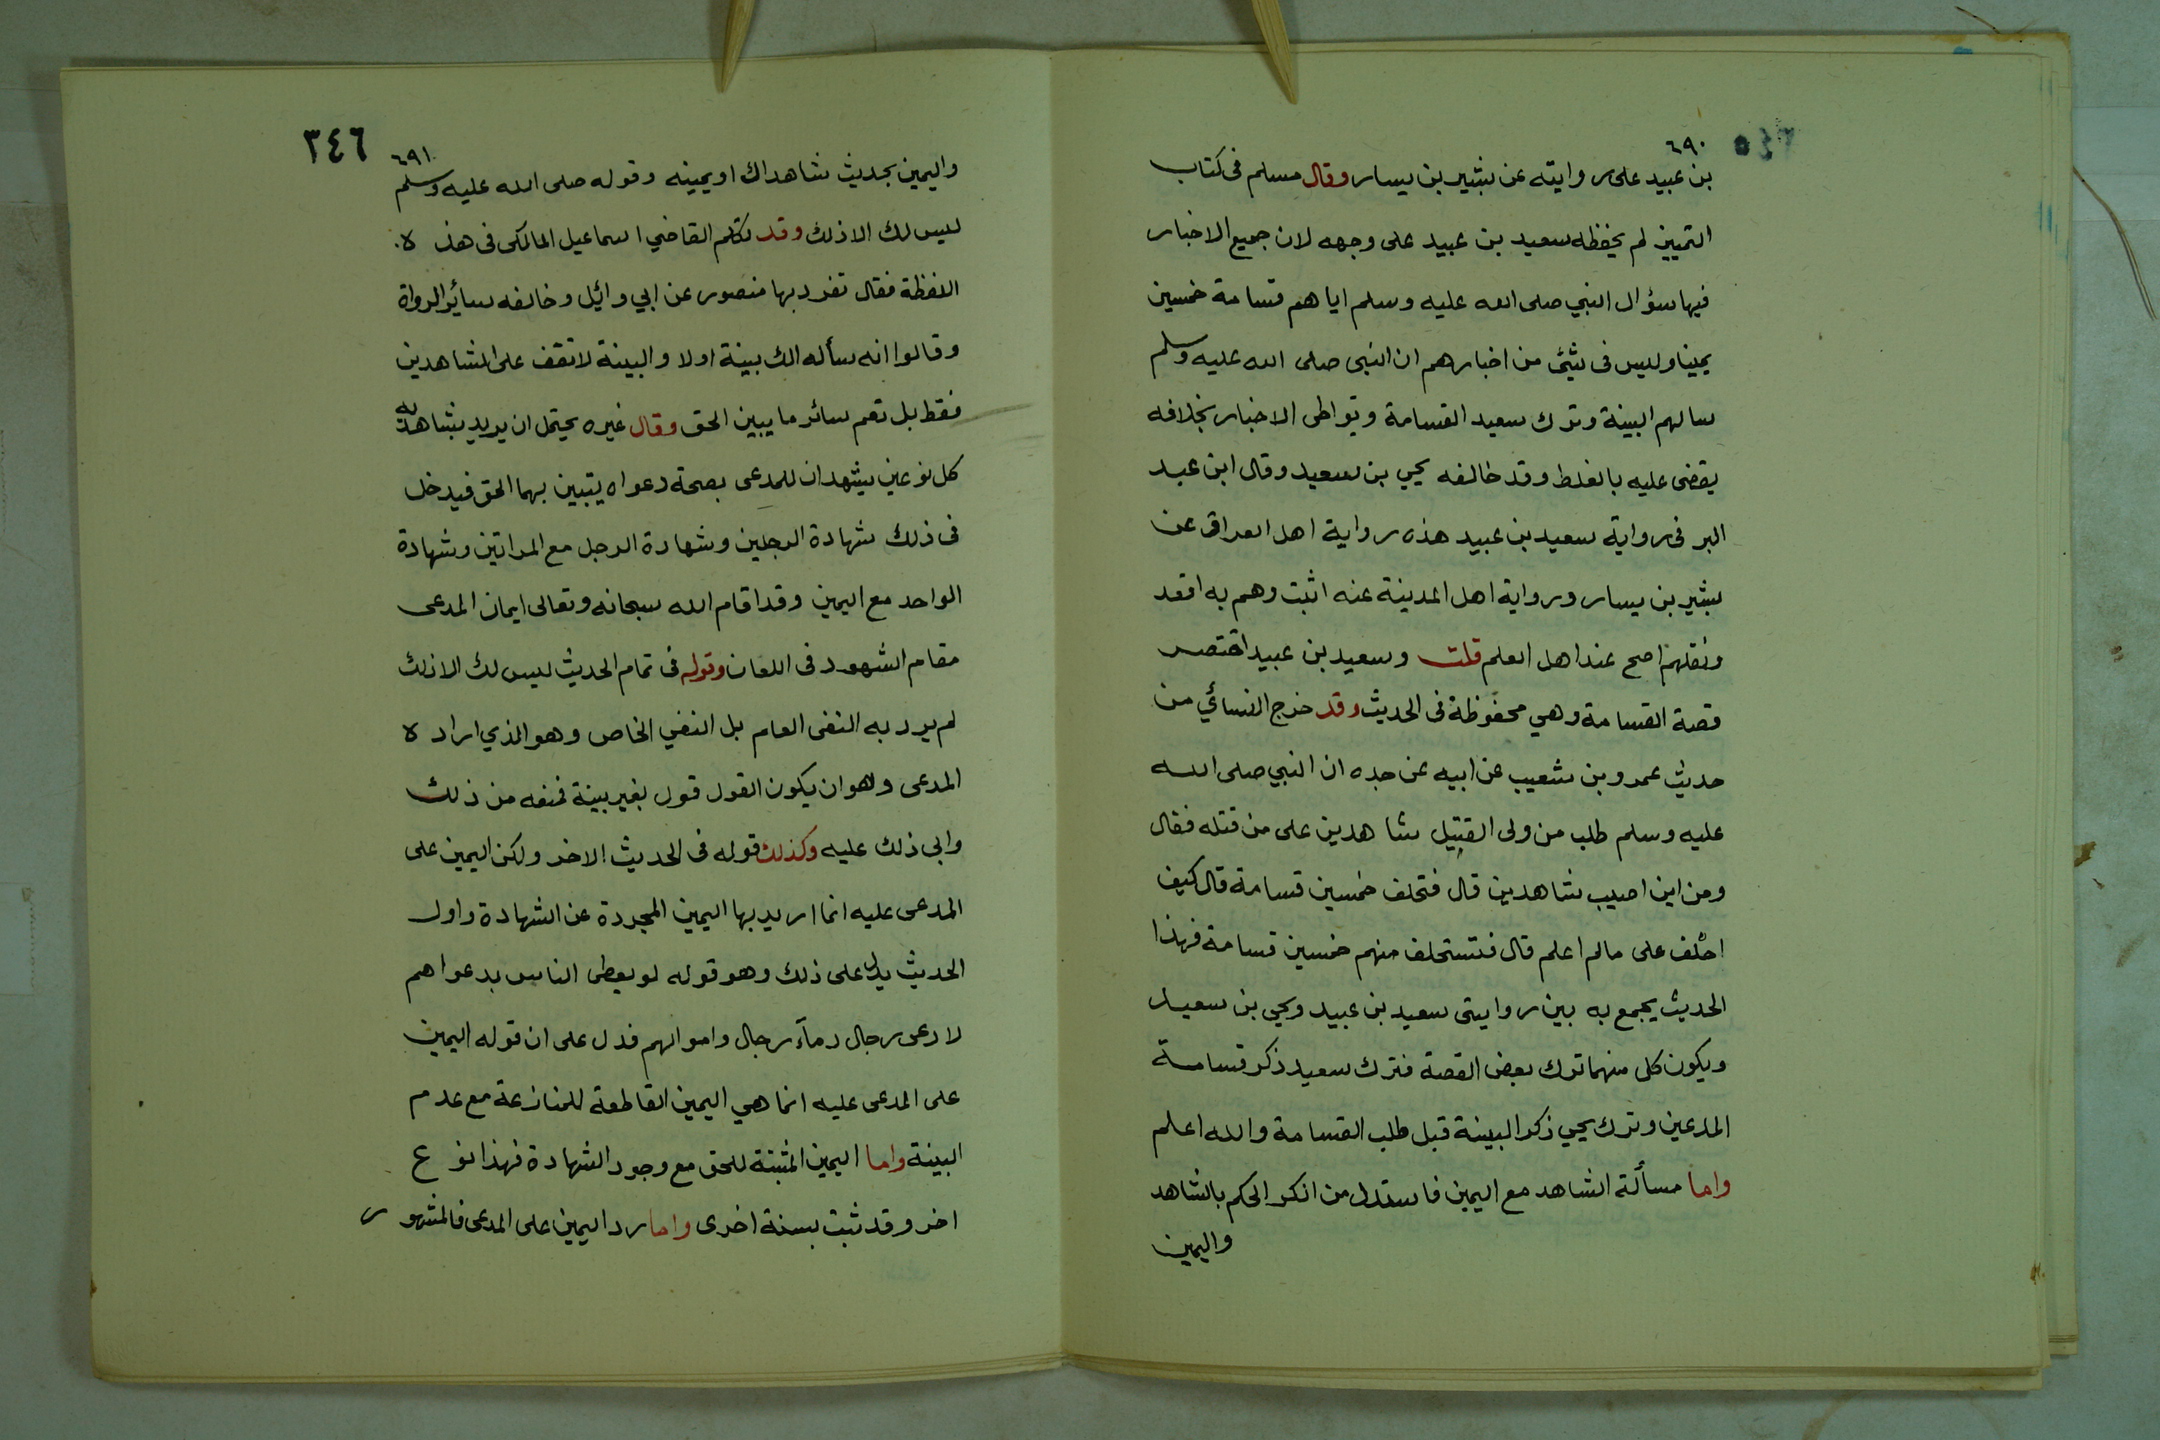 ٦٩٠
بن عبيد على روايته عن بشير بن يسار وقال مسلم فى كتاب
التمييز لم يحفظه سعيد بن عبيد على وجهه لان جميع الاخبار
فيها سؤال النبي صلى الله عليه وسلم اياهم قسامة خمسين
يمينا وليس فى شئ من اخبارهم ان النبى صلى الله عليه وسلم
سالهم البينة وترك سعيد القسامة وتواطى الاخبار بخلافه
يقضى عليه بالغلط وقد خالفه يحي بن سعيد وقال ابن عبد
البر فى رواية سعيد بن عبيد هذه رواية اهل العراق عن
بشير بن يسار ورواية اهل المدينة عنه اثبت وهم به اقعد
ونقلهم اصح عند اهل العلم قلت وسعيد بن عبيد اختصر
قصة القسامة وهي محفوظة فى الحديث وقد خرج النسائي من
حديث عمرو بن شعيب عن ابيه عن جده ان النبي صلى الله
عليه وسلم طلب من ولى القتيل شاهدين على من قتله فقال
ومن اين اصيب شاهدين قال فتحلف خمسين قسامة قال كيف
احلف على مالم اعلم قال فتستحلف منهم خمسين قسامة فهذا
الحديث يجمع به بين روايتى سعيد بن عبيد ويحي بن سعيد
ويكون كل منهما ترك بعض القصة فترك سعيد ذكر قسامة
المدعين وترك يحي ذكر البينة قبل طلب القسامة والله اعلم
واما مسألة الشاهد مع اليمين فاستدل من انكر الحكم بالشاهد
واليمين
٣٤٦
٦٩١
واليمين بحديث شاهداك او يمينه وقوله صلى الله عليه وسلم
ليس لك الا ذلك وقد تكلم القاضي اسماعيل المالكى فى هذه
اللفظة فقال تفرد بها منصور عن ابي وائل وخالفه سائر الرواة
وقالوا انه سأله الك بينة اولا والبينة لا تقف على الشاهدين
فقط بل تعم سائر ما يبين الحق وقال غيره يحتمل ان يريد بشاهديه
كل نوعين يشهدان للمدعى بصحة دعواه يتبين بهما الحق فيدخل
فى ذلك شهادة الرجلين وشهادة الرجل مع المراتين وشهادة
الواحد مع اليمين وقد اقام الله سبحانه وتعالى ايمان المدعى
مقام الشهود فى اللعان وقوله فى تمام الحديث ليس لك الا ذلك
لم يرد به النفى العام بل النفي الخاص وهو الذي اراده
المدعى وهو ان يكون القول قول بغير بينة فمنعه من ذلك
وابى ذلك عليه وكذلك قوله فى الحديث الاخر ولكن اليمين على
المدعى عليه انما اريد بها اليمين المجردة عن الشهادة واول
الحديث يدل على ذلك وهو قوله لو يعطى الناس بدعواهم
لادعى رجال دماء رجال واموالهم فدل على ان قوله اليمين
على المدعى عليه انما هي اليمين القاطعة للمنازعة مع عدم
البينة واما اليمين المثبتة للحق مع وجود الشهادة فهذا نوع
اخر وقد ثبت بسنة اخرى واما رد اليمين على المدعى فالمشهور